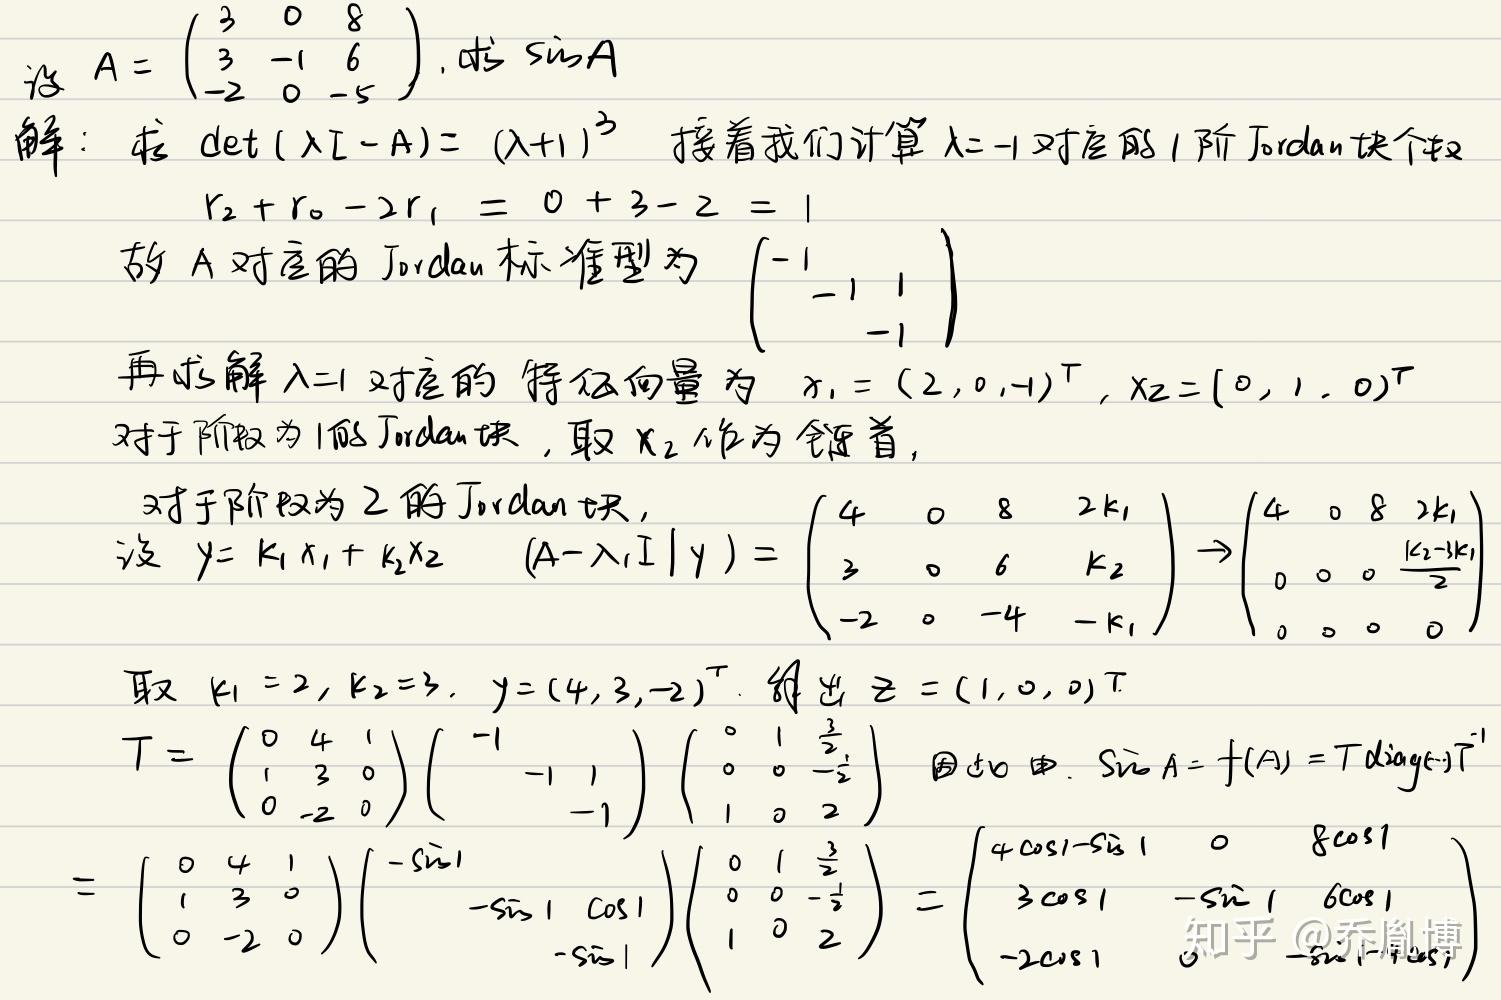 设 A = ( 3 0 8 ; 3 -1 6 ; -2 0 -5 ). 求 sinA
解: 求 det(λI-A) = (λ+1)³ 接着我们计算 λ=-1 对应的 1 阶 Jordan 块个数
r₂ + r₀ - 2r₁ = 0 + 3 - 2 = 1
故 A 对应的 Jordan 标准型为 ( -1 ; -1 1 ; -1 )
再求解 λ=1 对应的 特征向量为 x₁ = (2, 0, -1)ᵀ, x₂ = (0, 1, 0)ᵀ
对于阶数为1的Jordan块, 取 x₂ 作为链首,
对于阶数为 2 的 Jordan 块,
设 y = k₁x₁ + k₂x₂ (A-λ₁I | y) = ( 4 0 8 2k₁ ; 3 0 6 k₂ ; -2 0 -4 -k₁ ) → ( 4 0 8 2k₁ ; 0 0 0 (k₂-3k₁)/2 ; 0 0 0 0 )
取 k₁ = 2, k₂ = 3. y = (4, 3, -2)ᵀ. 解出 z = (1, 0, 0)ᵀ
T = ( 0 4 1 ; 1 3 0 ; 0 -2 0 ) ( -1 ; -1 1 ; -1 ) ( 0 1 3/2 ; 0 0 -1/2 ; 1 0 2 ) sin A = f(A) = T diag(...) T⁻¹
= ( 0 4 1 ; 1 3 0 ; 0 -2 0 ) ( -sin1 ; -sin1 cos1 ; -sin1 ) ( 0 1 3/2 ; 0 0 -1/2 ; 1 0 2 ) = ( 4cos1-sin1 0 8cos1 ; 3cos1 -sin1 6cos1 ; -2cos1 0 -sin1-4cos1 )
知乎 @乔胤博